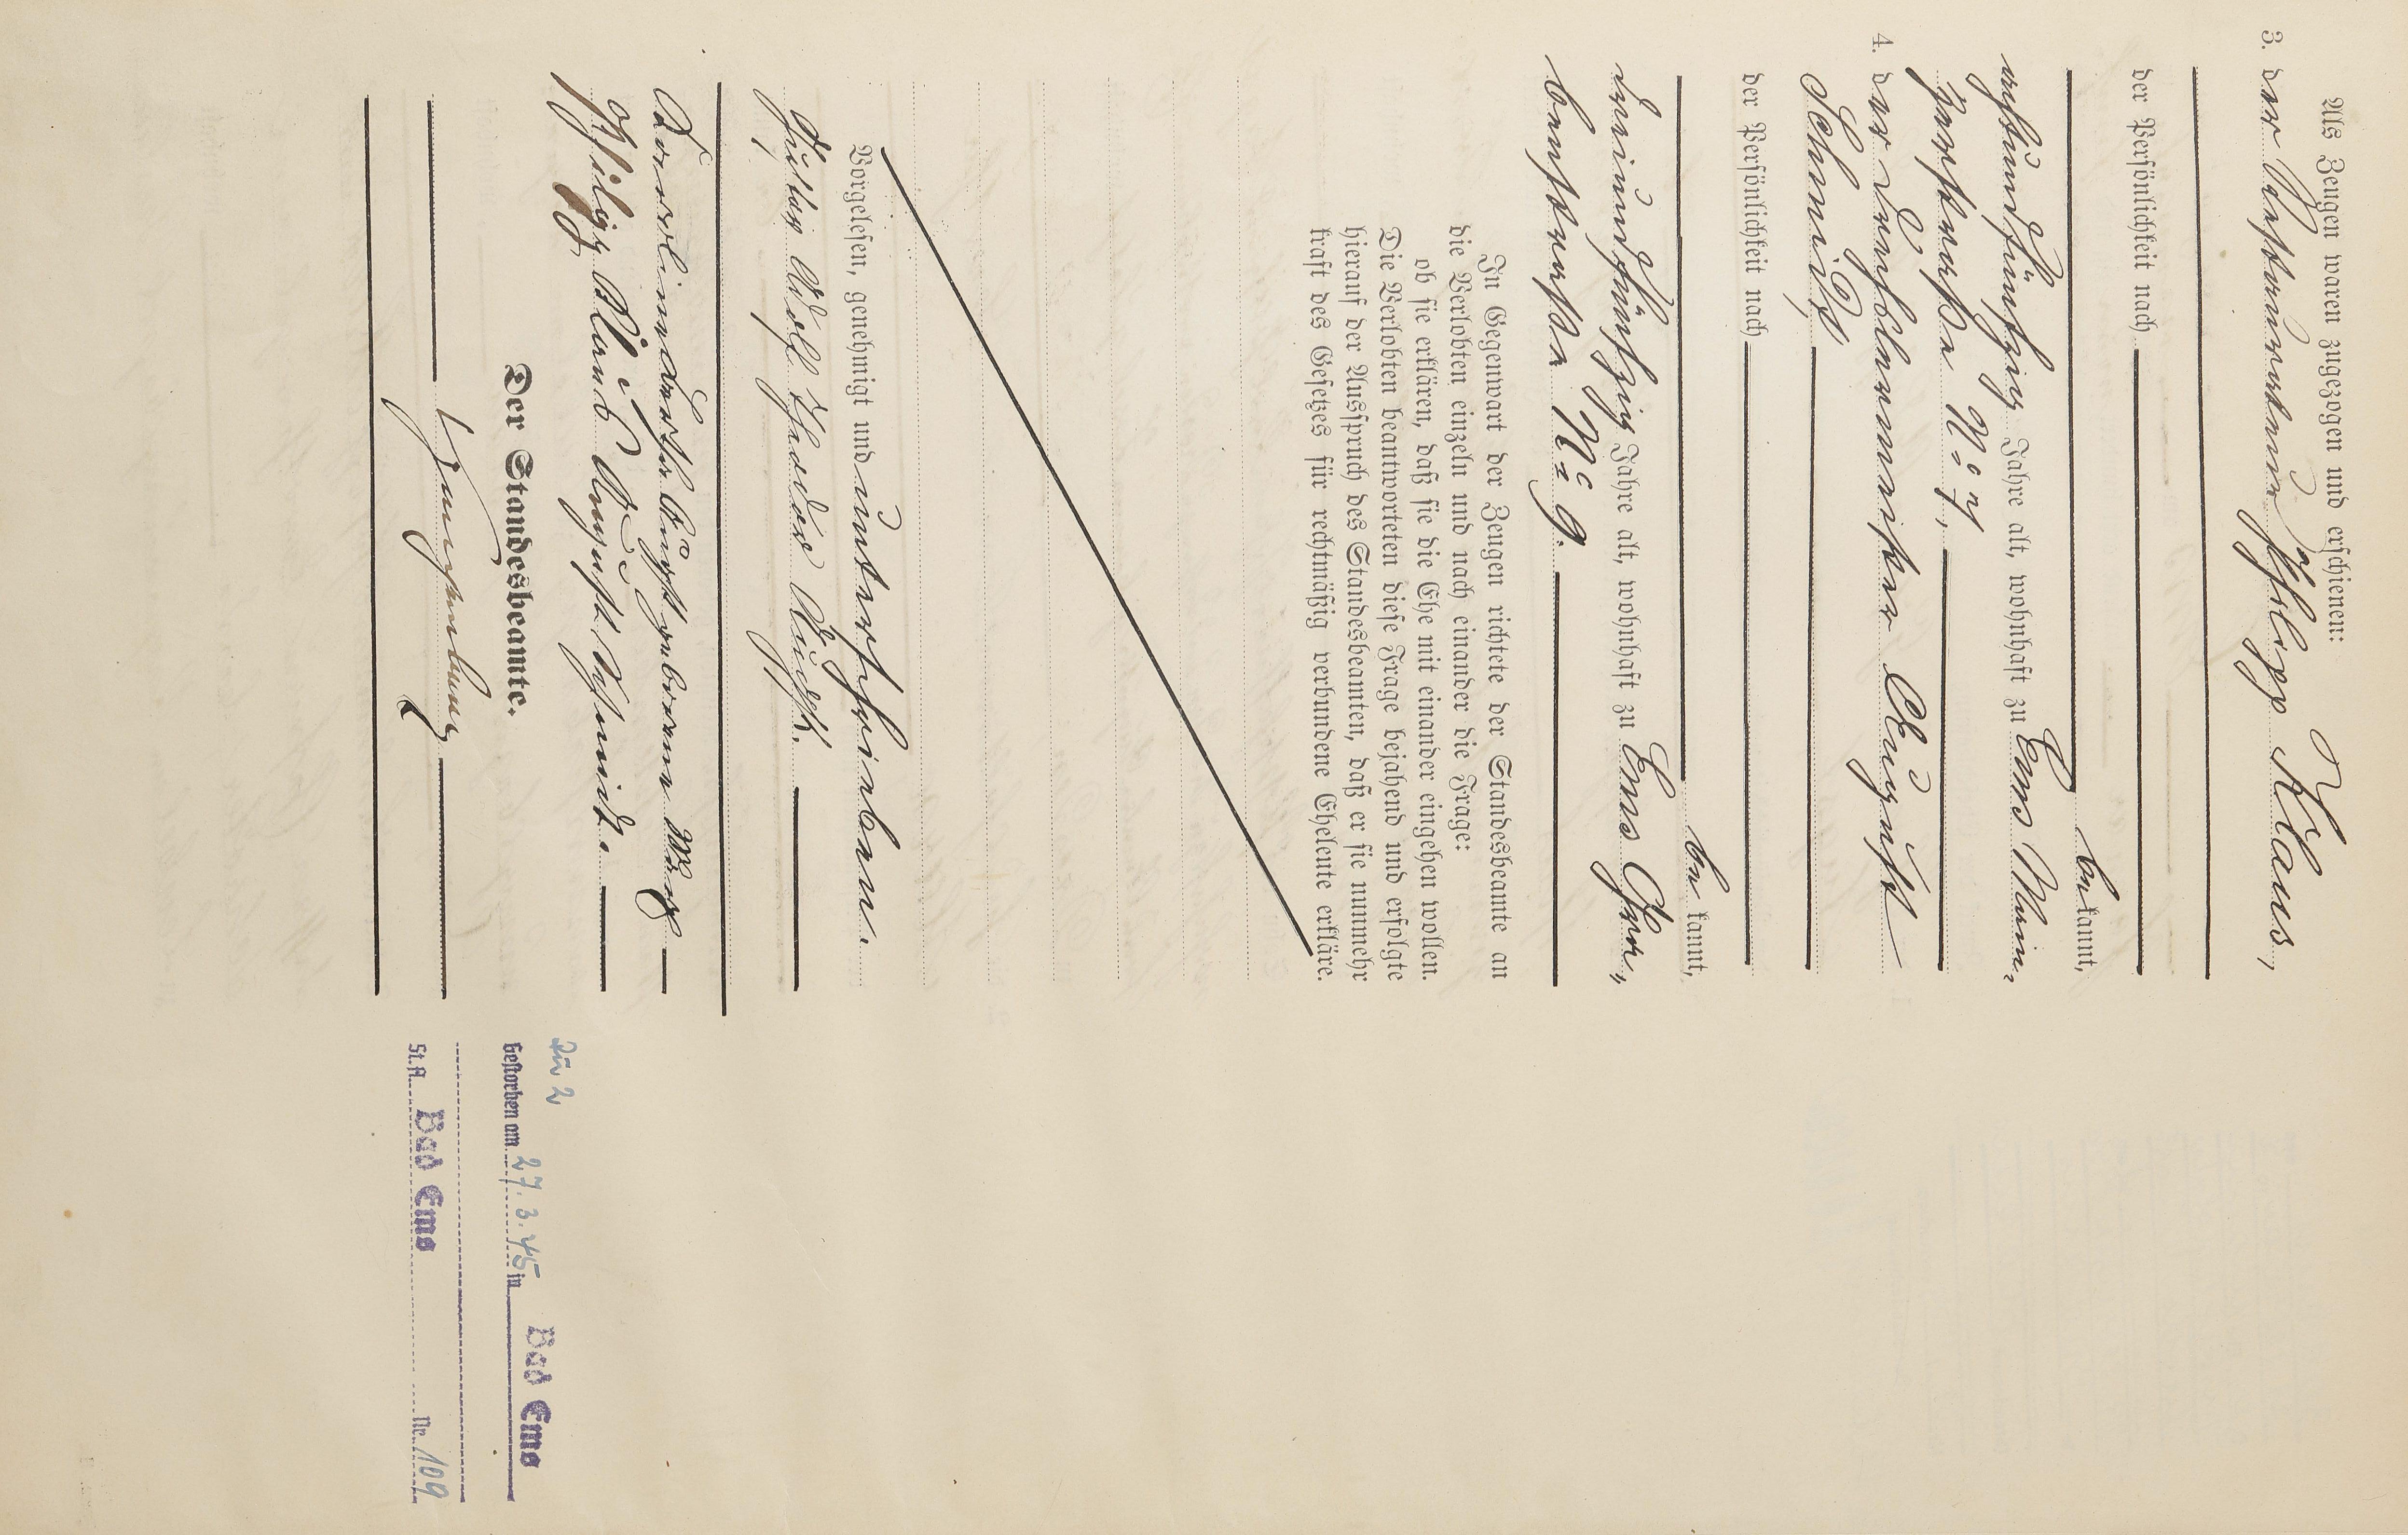 Als Zeugen waren zugezogen und erschienen:
3. der Philipp Klaus,
der Persönlichkeit nach
be kannt,
achtundfünfzig Jahre alt, wohnhaft zu Ems Main,
zerstraße No 7,
4. der August
Schmidt
der Persönlichkeit nach
be kannt,
dreiundfünfzig Jahre alt, wohnhaft zu Ems Ober,
No 9.
In Gegenwart der Zeugen richtete der Standesbeamte an
die Verlobten einzeln und nach einander die Frage:
ob sie erklären, daß sie die Ehe mit einander eingehen wollen.
Die Verlobten beantworteten diese Frage bejahend und erfolgte
hierauf der Ausspruch des Standesbeamten, daß er sie nunmehr
kraft des Gesetzes für rechtmäßig verbundene Eheleute erkläre.
Vorgelesen, genehmigt und unterschrieben.
Adolf Theodor
geborene
Philipp Klaus August Schmidt.
Der Standesbeamte.
Zu 2
Gestorben am 27.3.45 in Bad Ems
St.A. Bad Ems Nr. 109